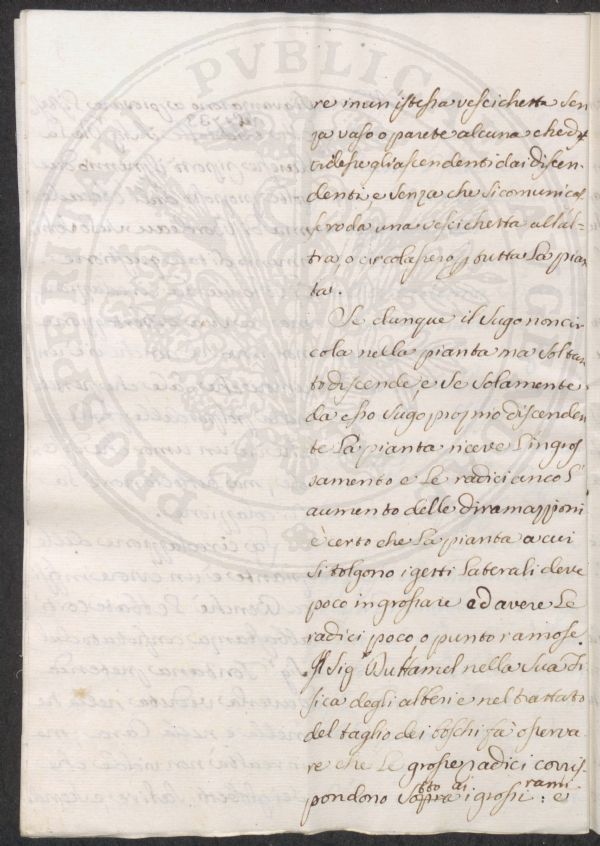 PROSPERITATI PUBLICAE
re in un istessa vescichetta sen
za vaso o parete alcuna che di
videsse gli ascendenti dai discen-
denti e senza che si comunicas
sero da una vescichetta all'al-
tra, o circolassero p tutta la pian
ta.
Se dunque il sugo non cir
cola nella pianta ma soltan
to discende e se solamente
da esso sugo proprio discenden
te la pianta riceve l'ingros
samento e le radici anco l'
aumento delle diramazioni
è certo che la pianta a cui
si tolgono i getti laterali deve
poco ingrossare ed avere le
radici poco o punto ramose.
Il Sig.r Duttamel nella sua fi
sica degli alberi e nel trattato
del taglio dei boschi fà osserva
re che le grosse radici corris
pondono sotto ai grossi rami : e